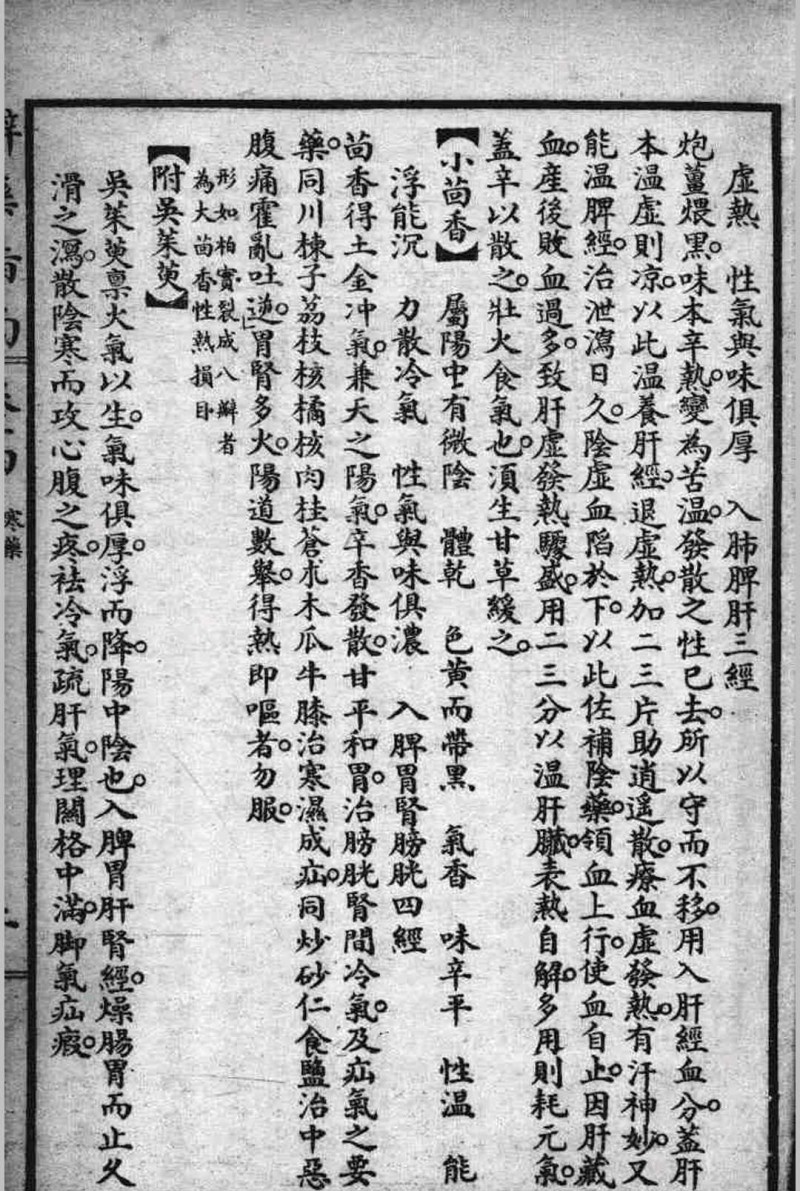 虛熱　性氣與味俱厚　入肺脾肝三經
炮薑煨黑。味本辛熱。變為苦溫。發散之性已去。所以守而不移。用入肝經血分。蓋肝
本溫虛則凉。以此溫養肝經。退虛熱。加二三片助逍遥散。療血虛發熱。有汗神妙。又
能溫脾經。治泄瀉日久。陰虛血陷於下。以此佐補陰藥。領血上行。使血自止。因肝藏
血。產後敗血過多。致肝虛發熱驟盛。用二三分以溫肝臟。表熱自解。多用則耗元氣。
蓋辛以散之。壯火食氣也。須生甘草緩之。
【小茴香】　屬陽中有微陰　體乾　色黃而帶黑　氣香　味辛平　性溫　能
浮能沉　力散冷氣　性氣與味俱濃　入脾胃腎膀胱四經
茴香得土金冲氣。兼天之陽氣。辛香發散。甘平和胃。治膀胱腎間冷氣。及疝氣之要
藥。同川楝子荔枝核橘核肉桂蒼朮木瓜牛膝治寒濕成疝。同炒砂仁食鹽治中惡
腹痛霍亂吐逆。胃腎多火。陽道數舉。得熱即嘔者。勿服。
形如柏實裂成八瓣者
為大茴香性熱損目
【附吳茱萸】
吳茱萸稟火氣以生。氣味俱厚。浮而降。陽中陰也。入脾胃肝腎經。燥腸胃而止久
滑之瀉。散陰寒而攻心腹之疼。祛冷氣。疏肝氣。理關格中滿。脚氣疝瘕。
寒藥